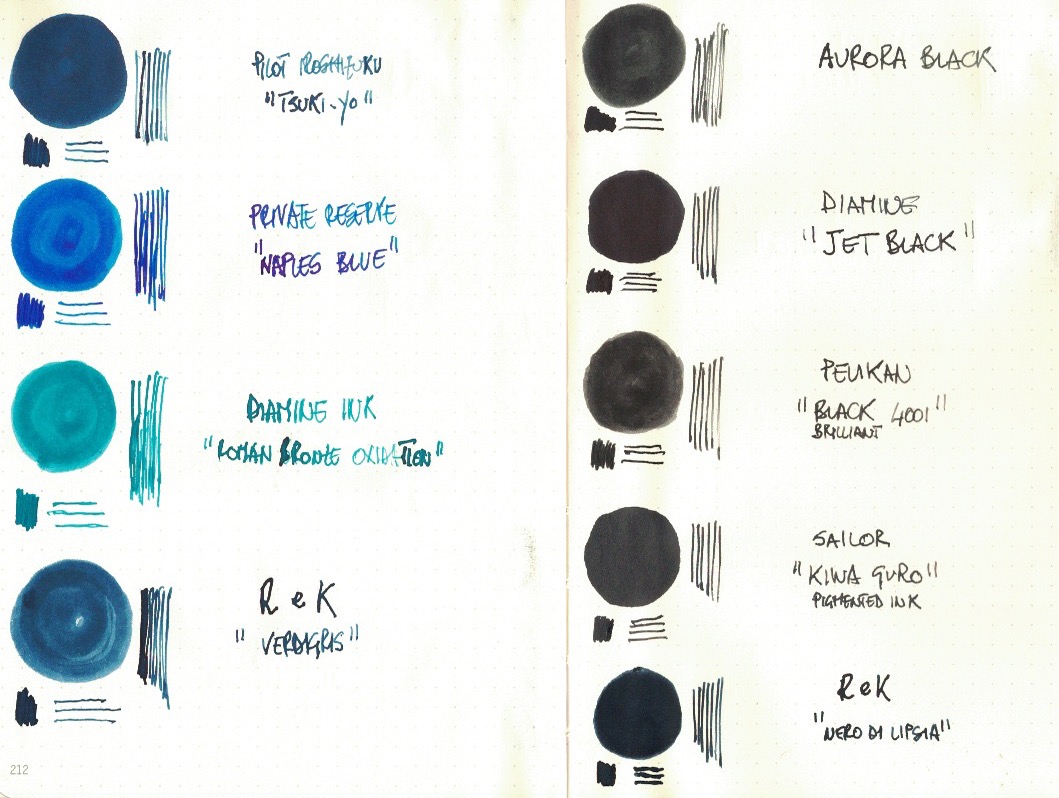 PILOT IROSHIZUKU
"TSUKI-YO"
PRIVATE RESERVE
"NAPLES BLUE"
DIAMINE INK
"ROMAN BRONZE OXIDATION"
R e K
"VERDIGRIS"
212
AURORA BLACK
DIAMINE
"JET BLACK"
PELIKAN
"BLACK 4001"
BRILLIANT
SAILOR
"KIWA GURO"
PIGMENTED INK
R e K
"NERO DI LIPSIA"